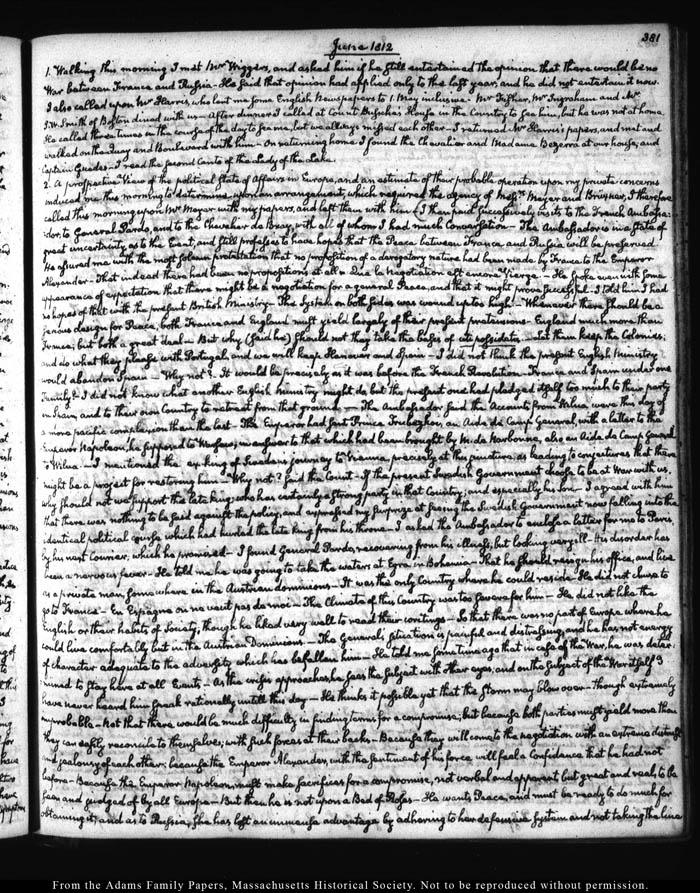 381
June 1812
1. Walking this morning I met Mr Wiggers, and asked him if he still entertained the opinion that there would be no
War between France and Russia — He said that opinion had applied only to the last year, and he did not entertain it now.
I also called upon Mr Harris, who lent me some English Newspapers to 1. May inclusive. Mr Fisher, Mr Ingraham and Mr
J. W. Smith of Boston dined with us — After dinner I called at Count Bussche's House in the Country to see him, but he was not at home.
He called three times in the course of the day to see me, but we always missed each other — I returned Mr Harris's papers, and met and
walked on the Quay and Boulevard with him — On returning home I found the Chevalier and Madame Bezerra at our house, and
Captain Guedes — I read the second Canto of the Lady of the Lake.
2. A prospective View of the political State of Affairs in Europe, and an estimate of their probable operation upon my private concerns
induced me this morning to determine upon an arrangement, which required the agency of Messrs Meyer and Bruxner, I therefore
called this morning upon Mr Meyer with my papers, and left them with him — I then paid successively visits to the French Ambassa-
dor, to General Pardo, and to the Chevalier de Bray, with all of whom I had much Conversation — The Ambassador is in a State of
great uncertainty as to the Event, and still professes to have hopes that the Peace between France and Russia will be preserved
He assured me with the most solemn protestation that no proposition of a derogatory nature had been made by France to the Emperor
Alexander — That indeed there had been no propositions at all — Que la Negotiation est encore Vierge — He spoke even with some
appearance of expectation that there might be a negotiation for a general Peace, and that it might prove successful — I told him I had
no hopes of that with the present British Ministry — The System on both sides was wound up too high — Whenever there should be a
serious design for Peace, both France and England must yield largely of their present pretensions — England much more than
France; but both a great deal — But why (said he) should not they take the bases of uti possidetis — Let them keep the Colonies;
and do what they please with Portugal, and we will keep Hanover and Spain — I did not think the present English Ministry
would abandon Spain — Why not? It would be precisely as it was before the French Revolution — France and Spain under one
Family — I did not know what another English Ministry might do but the present one had pledged itself too much to their party
in Spain, and to their own Country to retreat from that ground — The Ambassador said the Accounts from Wilna were this day of
a more pacific complexion than the last — The Emperor had sent Prince Trubezkoy, an Aide de Camp General, with a letter to the
Emperor Napoleon, he supposed to Warsaw; in answer to that which had been brought by M. de Narbonne, also an Aide de Camp General
to Wilna — I mentioned the ex king of Sweden's journey to Vienna, precisely at this juncture, as leading to conjectures that there
might be a project for restoring him — Why not? said the Count — If the present Swedish Government choose to be at War with us,
why should not we support the late king; who has certainly a strong party in that Country; and especially his Son — I agreed with him
that there was nothing to be said against the policy, and expressed my surprize at seeing the Swedish Government now falling into the
identical political course which had hurled the late king from his throne — I asked the Ambassador to enclose a letter for me to Paris,
by his next Courier, which he promised — I found General Pardo, recovering from his illness, but looking very ill — His disorder has
been a nervous fever — He told me he was going to take the waters at Egra in Bohemia — That he should resign his office, and live
as a private man, somewhere in the Austrian dominions — It was the only Country where he could reside — He did not chuse to
go to France — En Espagne on ne veut pas de moi — The Climate of this Country was too severe for him — He did not like the
English or their habits of Society, though he liked very well to read their writings — So that there was no part of Europe where he
could live comfortably but in the Austrian Dominions — The General's situation is painful and distressing, and he has not energy
of character adequate to the adversity which has befallen him — He told me some time ago that in case of the War, he was deter-
mined to stay here at all Events — As the crisis approaches, he sees the subject with other eyes; and on the subject of the War itself I
have never heard him speak rationally until this day — He thinks it possible yet that the storm may blow over — though extremely
improbable — Not that there would be much difficulty in finding terms for a compromise; but because both parties must yield more than
they can easily reconcile to themselves, with such forces at their backs — Because they will come to the negotiation with an extreme distrust
and jealousy of each other; because the Emperor Alexander, with the sentiment of his force will feel a Confidence that he had not
before — Because the Emperor Napoleon, must make sacrifices for a compromise, not verbal and apparent but great and real; to be
seen and judged of by all Europe — But then he is not upon a Bed of Roses — He wants Peace, and must be ready to do much for
obtaining it; and as to Russia, she has lost an immense advantage by adhering to her defensive system and not taking the line
From the Adams Family Papers, Massachusetts Historical Society. Not to be reproduced without permission.